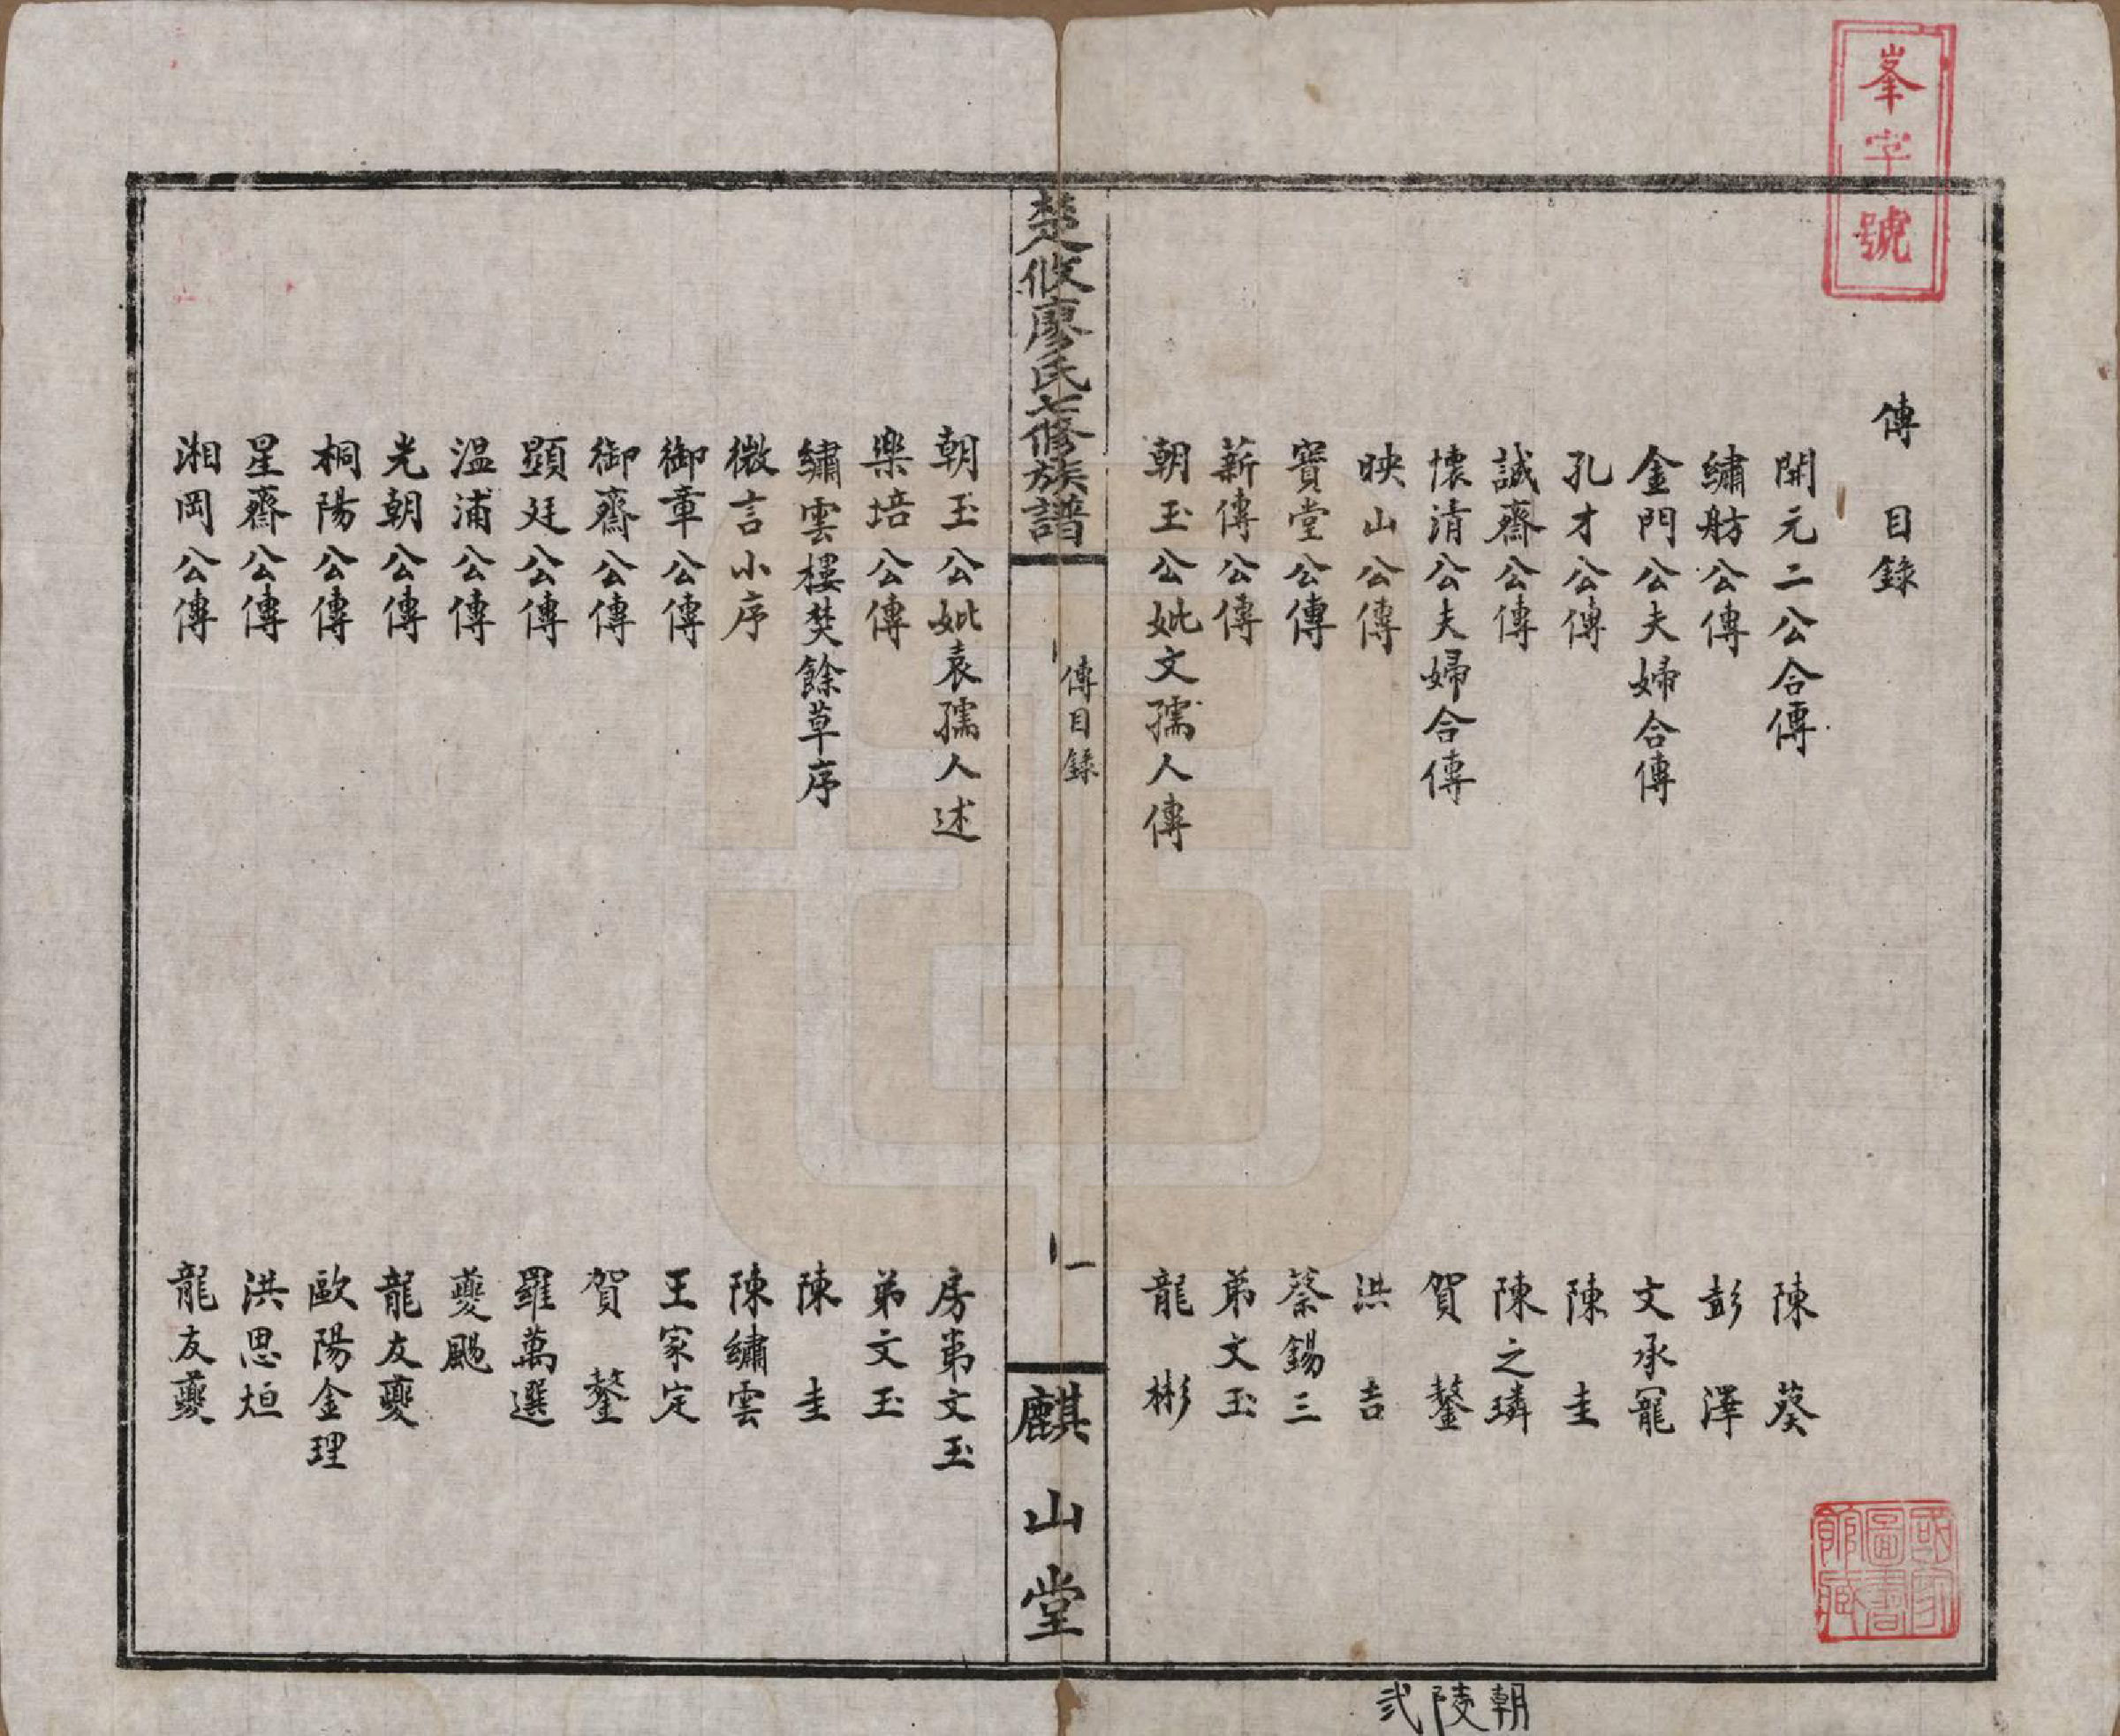 峯字號
傳目錄
開元二公合傳　陳葵
繡舫公傳　彭澤
金門公夫婦合傳　文承寵
孔才公傳　陳圭
誠齋公傳　陳之璘
懷清公夫婦合傳　賀鏊
映山公傳　洪吉
寶堂公傳　蔡錫三
薪傳公傳　弟文玉
朝玉公妣文孺人傳　龍彬
楚攸廖氏七修族譜
傳目錄
一
麒山堂
朝玉公妣袁孺人述　房弟文玉
樂培公傳　弟文玉
繡雲樓焚餘草序　陳圭
微言小序　陳繡雲
御章公傳　王家定
御齋公傳　賀鏊
顕廷公傳　羅萬選
温浦公傳　夔颺
光朝公傳　龍友夔
桐陽公傳　歐陽金理
星齋公傳　洪思烜
湘岡公傳　龍友夔
國家圖書館藏
朝陵弍